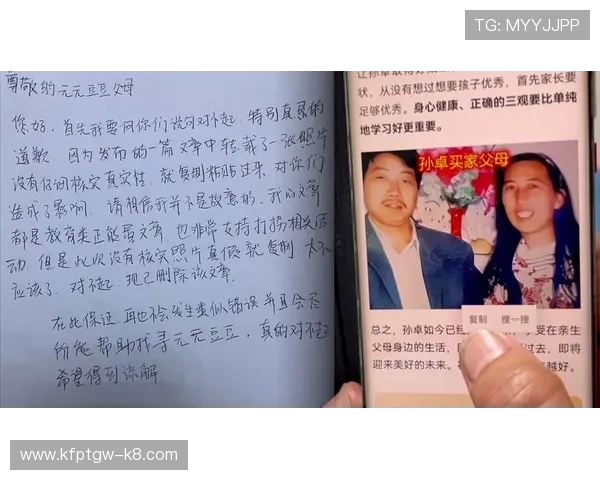 TG: MYYJJPP
尊敬的元元豆豆父母
您好，首先我要向你们说句对不起，特别真恳的
道歉，因为发布的一篇文章中转载了一张照片
没有仔细核实真实性，就复制粘贴过来，对你们
造成了影响，请相信我并不是故意的，我的文章
都是教育类正能量文章，也非常支持打拐相关活
动，但是此次没有核实照片真假就复制，太不
应该了，对不起，现已删除该文章，
在此保证，再也不会发生类似错误并且会尽
所能帮助找寻元元豆豆，真的对不起
希望得到谅解
让孙卓取得好
状，从没有想过想要孩子优秀，首先家长要
足够优秀。身心健康、正确的三观要比单纯
地学习好更重要。
孙卓买家父母
复制 搜一搜
总之，孙卓如今已经 受在亲生
父母身边的生活， 过去，即将
迎来美好的未来。 越好。
www.kfptgw-k8.com